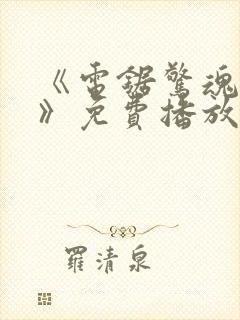 《电锯惊魂
》免費播放
羅清泉